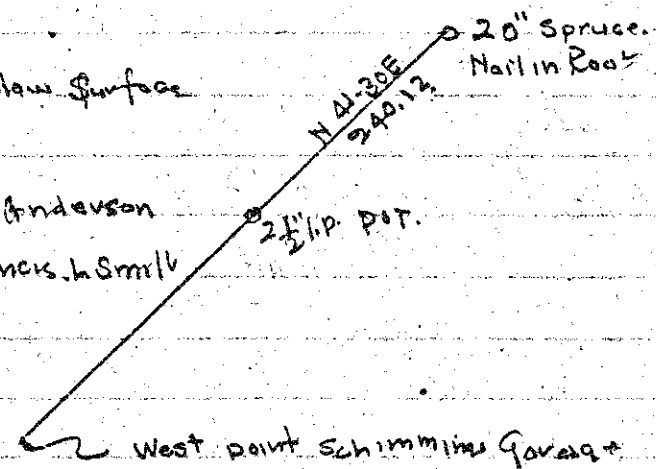 20" Spruce.
Nail in Root
low Surface
N 41-30E
240.12
Anderson
2½" I.P. POT.
ncis. h Smith
West point Schimming Garage